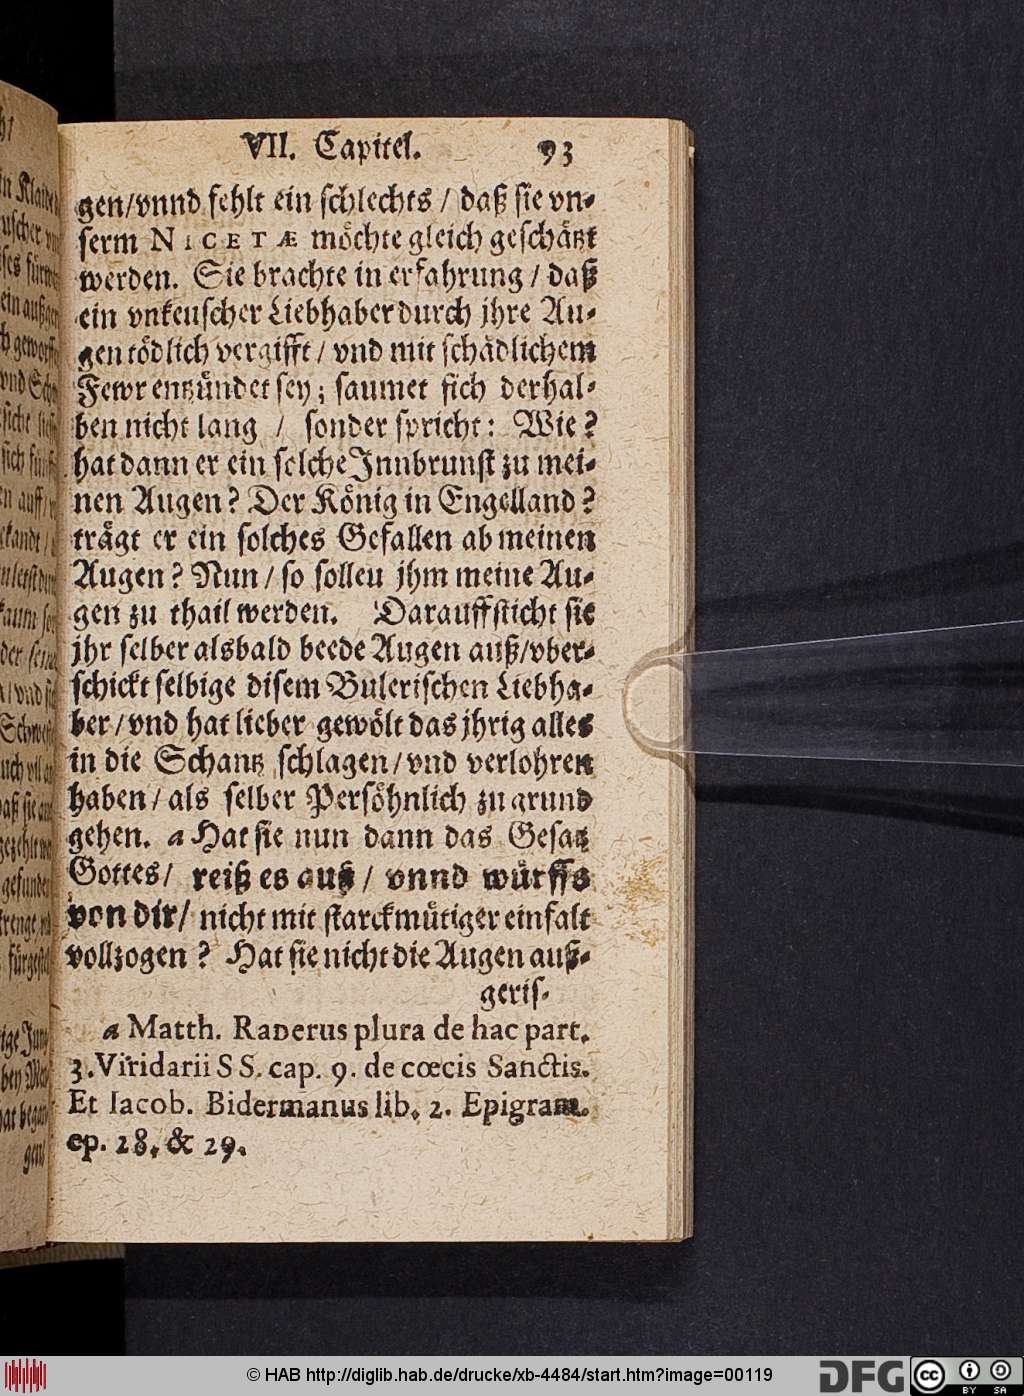 VII. Capitel. 93
gen/vnnd fehlt ein schlechts / daß sie vn-
serm NICETÆ möchte gleich geschätzt
werden. Sie brachte in erfahrung / daß
ein vnkeuscher Liebhaber durch jhre Au-
gen tödlich vergifft / vnd mit schädlichem
Fewr entzündet sey; saumet sich derhal-
ben nicht lang / sonder spricht: Wie?
hat dann er ein solche Jnnbrunst zu mei-
nen Augen? Der König in Engelland?
trägt er ein solches Gefallen ab meinen
Augen? Nun / so sollen jhm meine Au-
gen zu thail werden. Darauff sticht sie
jhr selber alsbald beede Augen auß/vber-
schickt selbige disem Bulerischen Liebha-
ber/vnd hat lieber gewölt das jhrig alles
in die Schantz schlagen/vnd verlohren
haben/als selber Persöhnlich zu grund
gehen. a Hat sie nun dann das Gesatz
Gottes/ reiß es auß / vnnd würffs
von dir/ nicht mit starckmütiger einfalt
vollzogen? Hat sie nicht die Augen auß-
geris-
a Matth. Raderus plura de hac part.
3. Viridarii SS. cap. 9. de cœcis Sanctis.
Et Iacob. Bidermanus lib. 2. Epigram.
ep. 28. & 29.
© HAB http://diglib.hab.de/drucke/xb-4484/start.htm?image=00119
DFG
cc BY SA